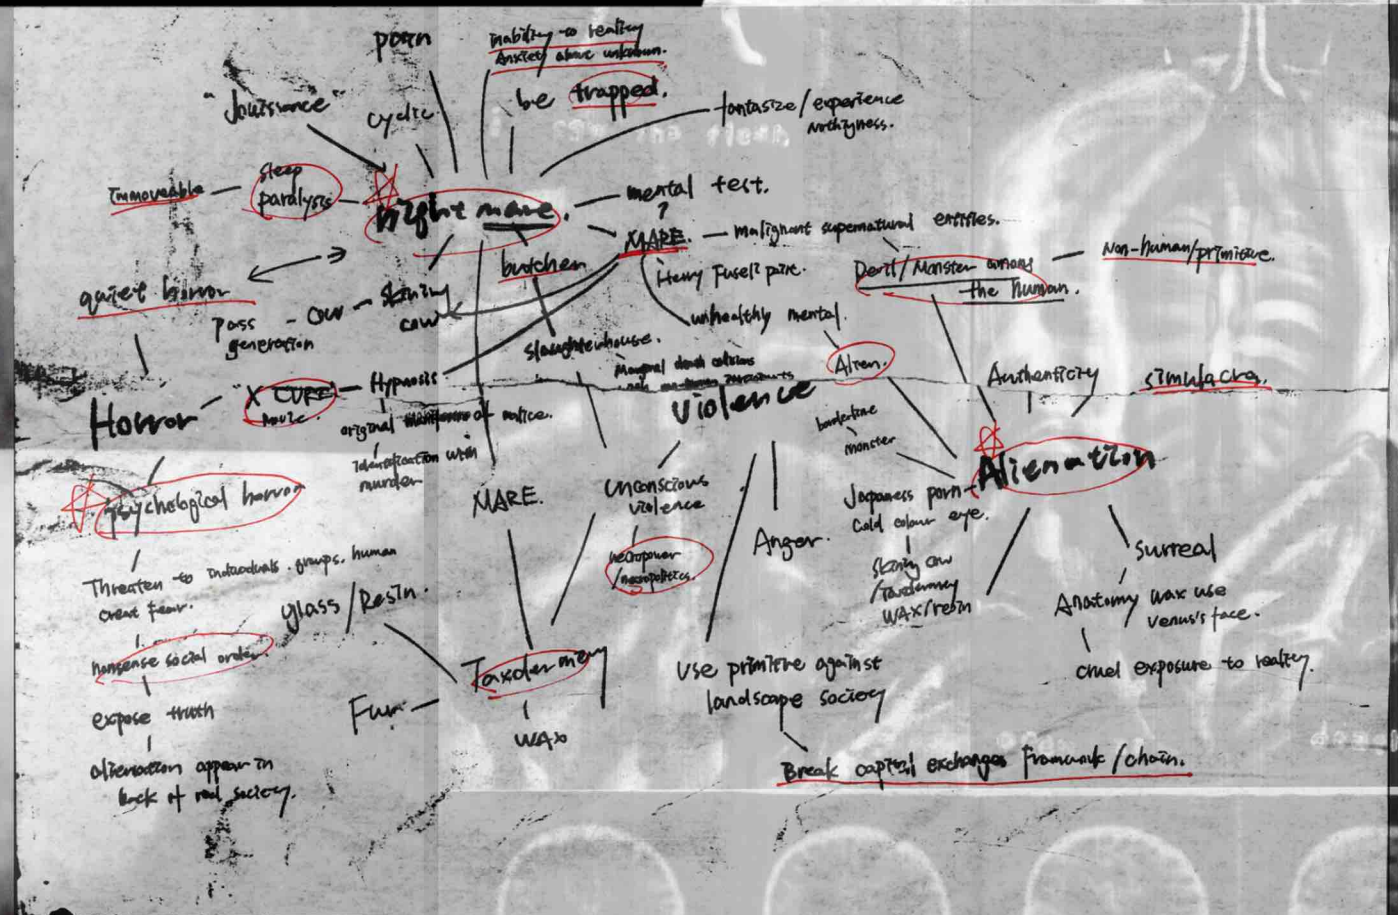 porn
inability to reality
Anxiety above unknown.
be trapped.
"Jouissance"
cyclic
fantasize/experience
nothingness.
immoveable
sleep
paralysis
night mare.
mental test.
?
MARE.
malignant supernatural entities.
Henry Fuseli
Devil/Monster among
the human.
Non-human/primitive.
quiet horror
butcher
skining
cow
cow
pass
generation
unhealthy mental.
slaughterhouse.
Marginal death
Alien.
Horror
X CURE
movie.
Hypnosis
original of malice.
identification with
murder
violence
Authenticity
simulacra.
borderline
monster
Alienation
psychological horror
MARE.
unconscious
violence
necropower
/necropolitics.
Anger.
Japaness porn
cold colour eye.
skining cow
/taxdermey
WAX/resin
surreal
Anatomy wax use
venus's face.
cruel exposure to reality.
Threaten to individuals. groups. human
creat fear.
glass/Resin.
nonsense social order.
expose truth
alienation appear in
back of real society.
Taxdermey
Fur
WAX
use primitive against
landscape society
Break capital exchanges framwork/chain.